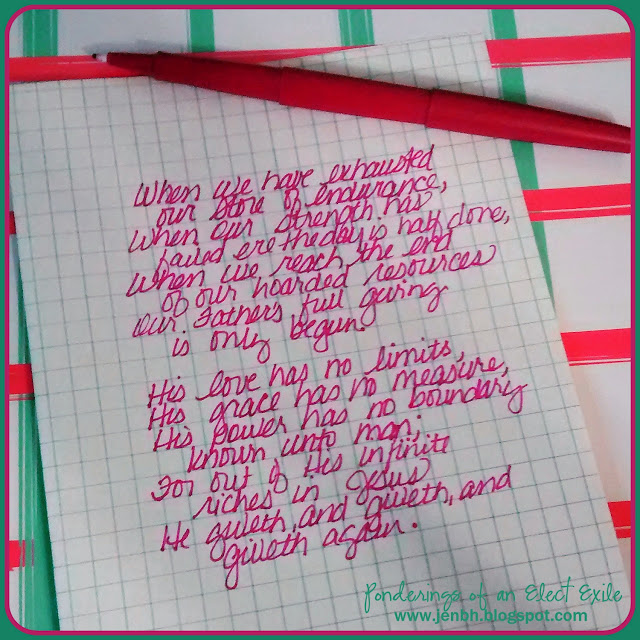 When we have exhausted
our store of endurance,
When our strength has
failed ere the day is half done,
When we reach the end
of our hoarded resources
Our Father's full giving
is only begun.
His love has no limits,
His grace has no measure,
His power has no boundary
known unto man;
For out of His infinite
riches in Jesus
He giveth, and giveth, and
giveth again.
Ponderings of an Elect Exile
www.jenbh.blogspot.com